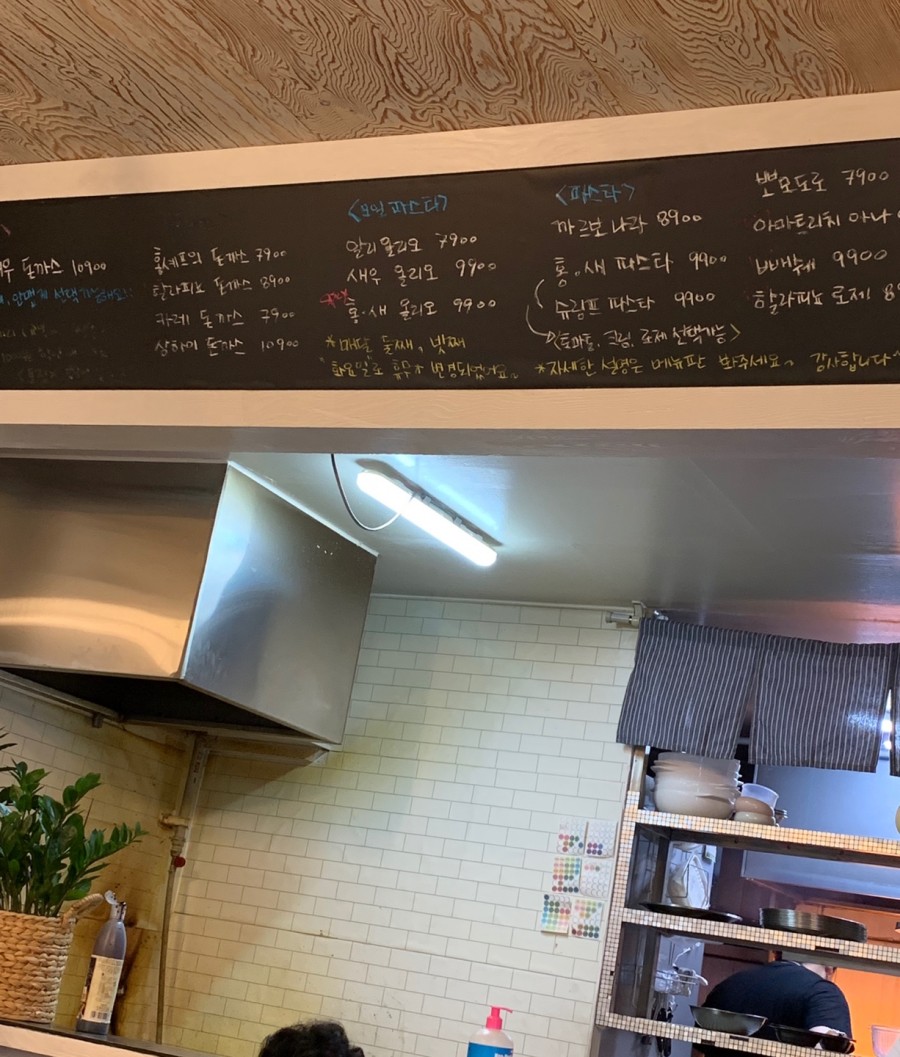 돈까스 10900
홀쎄트의 돈까스 7900
할라피뇨 돈까스 8900
카레 돈까스 7900
상하이 돈까스 10900
<오일파스타>
알리올리오 7900
새우 올리오 9900
홍.새 올리오 9900
*매달 둘째, 넷째
화요일로 휴무가 변경되었어요.
<파스타>
까르보나라 8900
홍.새 파스타 9900
슈림프 파스타 9900
(토마토, 크림, 로제 선택가능)
*자세한 설명은 메뉴판 봐주세요. 감사합니다
뽀모도로 7900
아마트리치아나
빠베쎄 9900
할라피뇨 로제